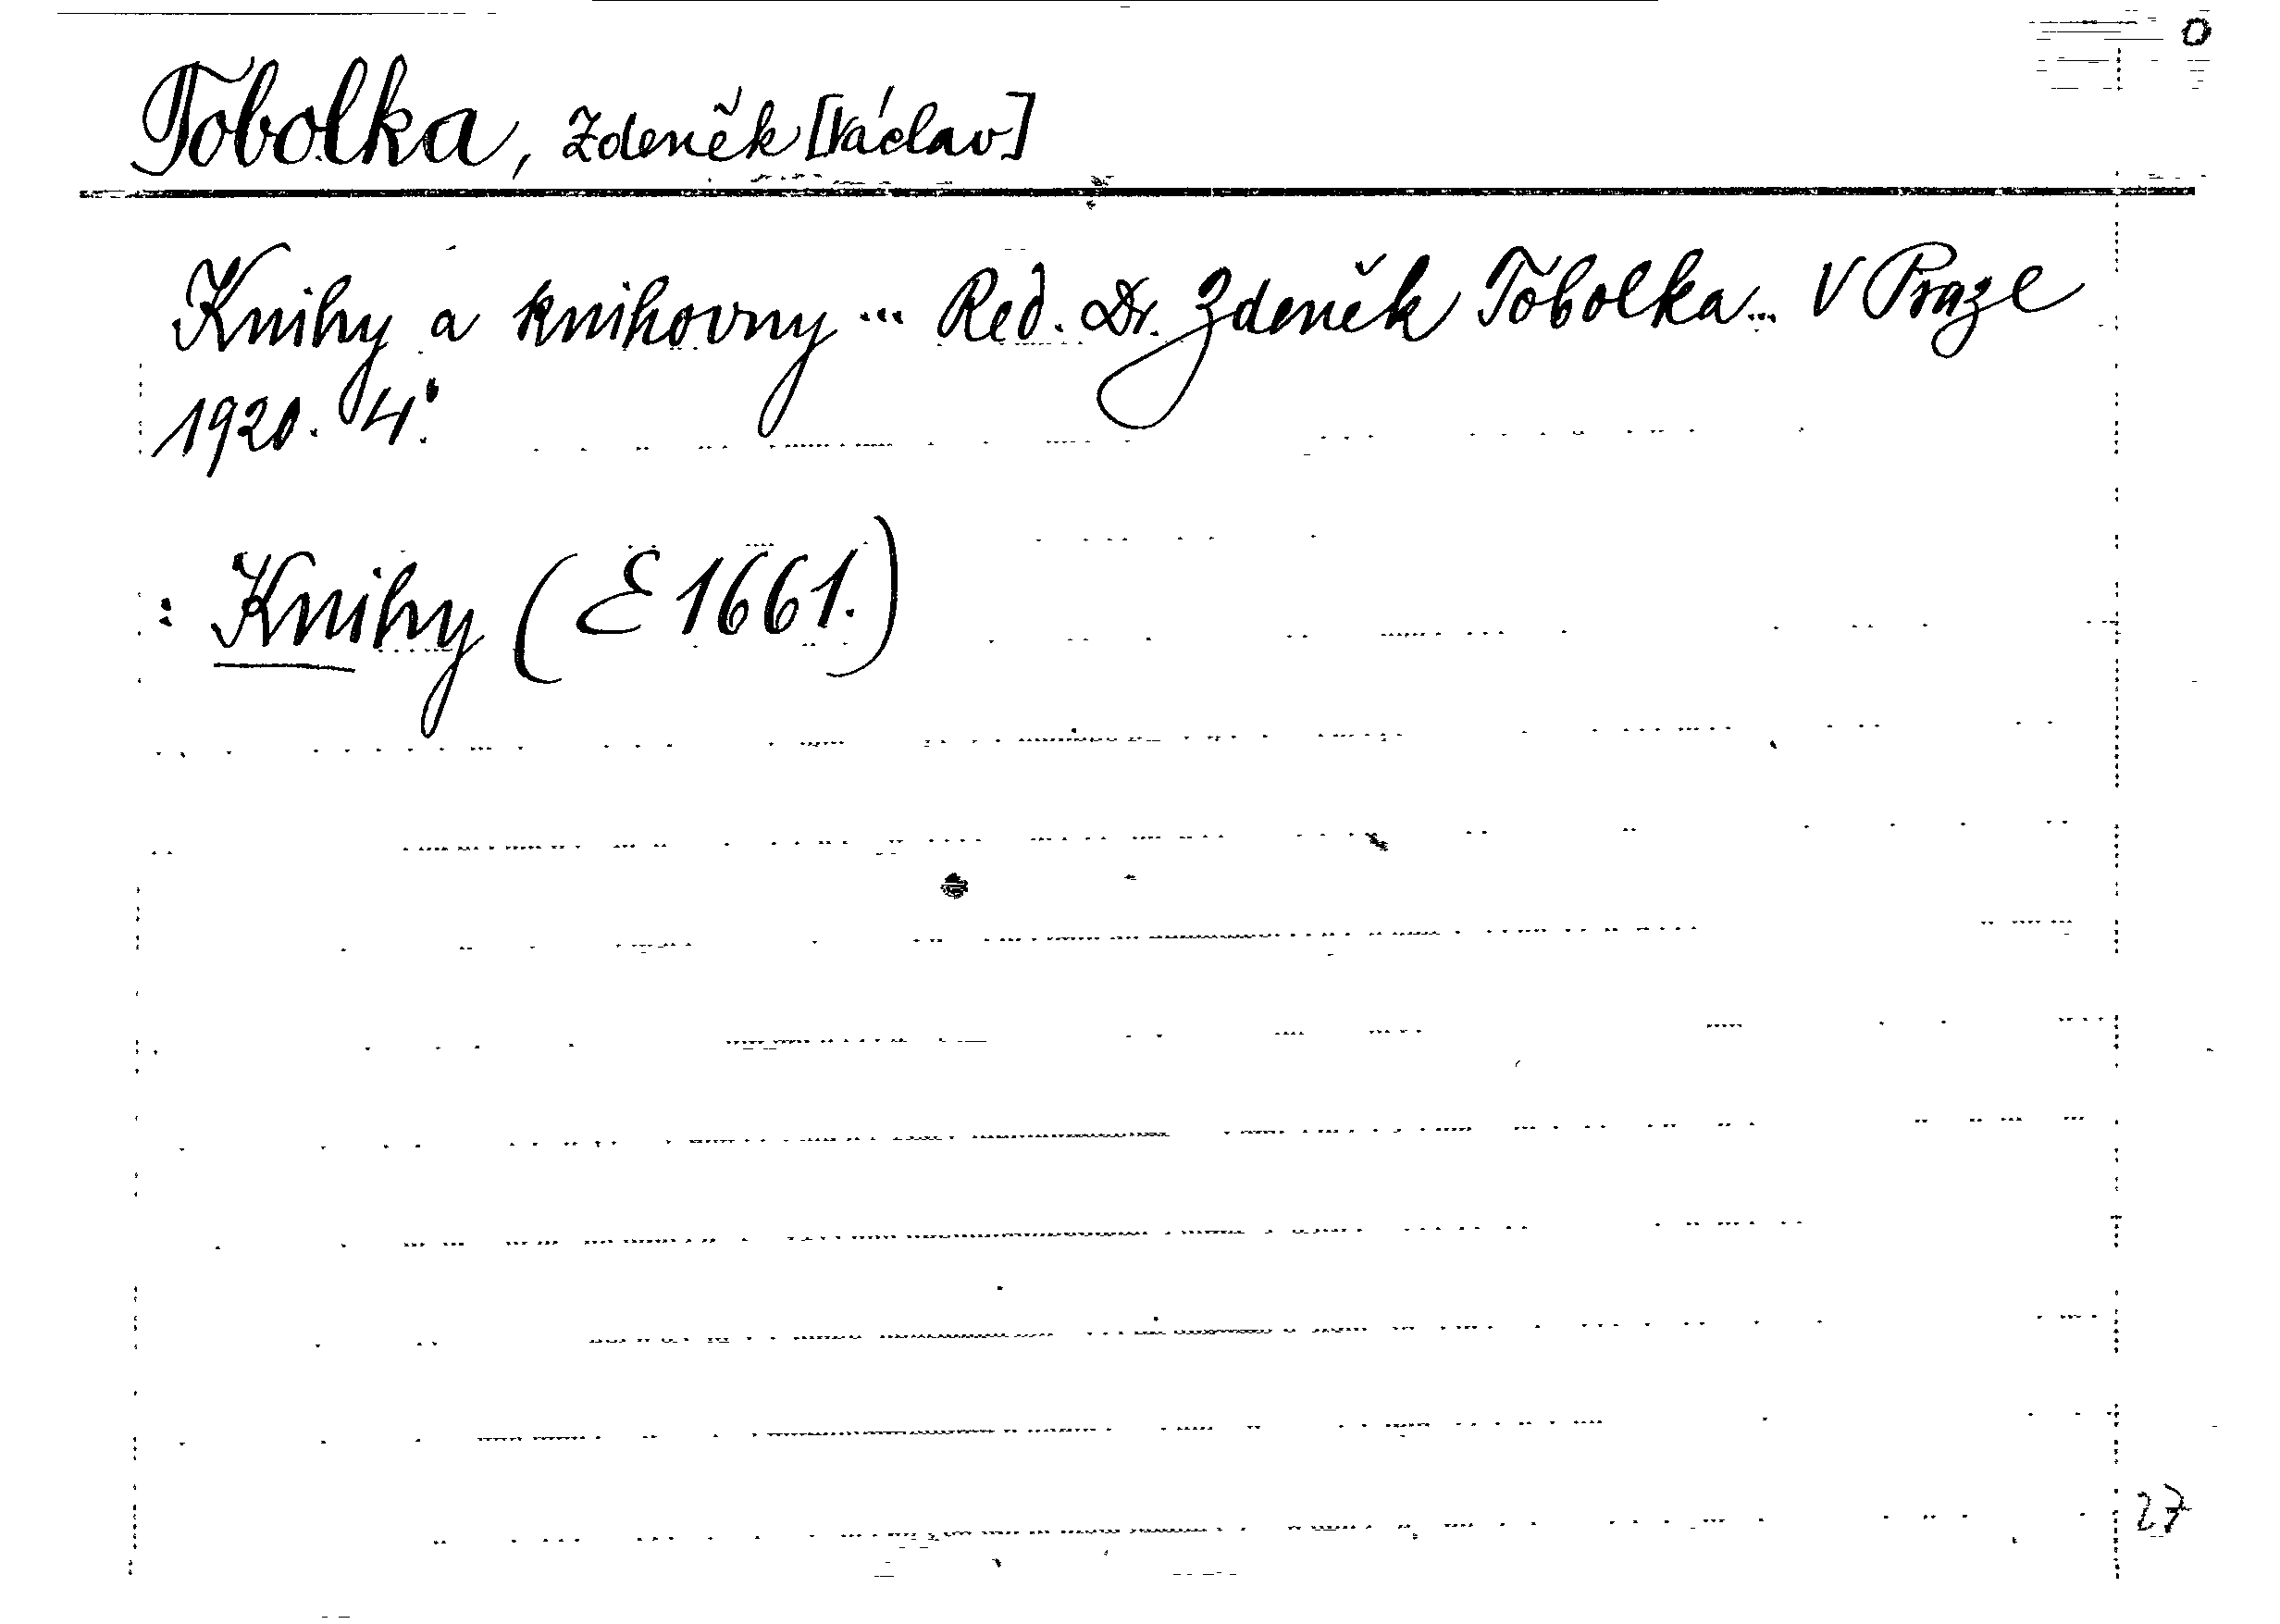 0
Tobolka, Zdeněk [Václav]
Knihy a knihovny ... Red. Dr. Zdeněk Tobolka... V Praze
1920. 4°.
: Knihy (E 1661.)
27